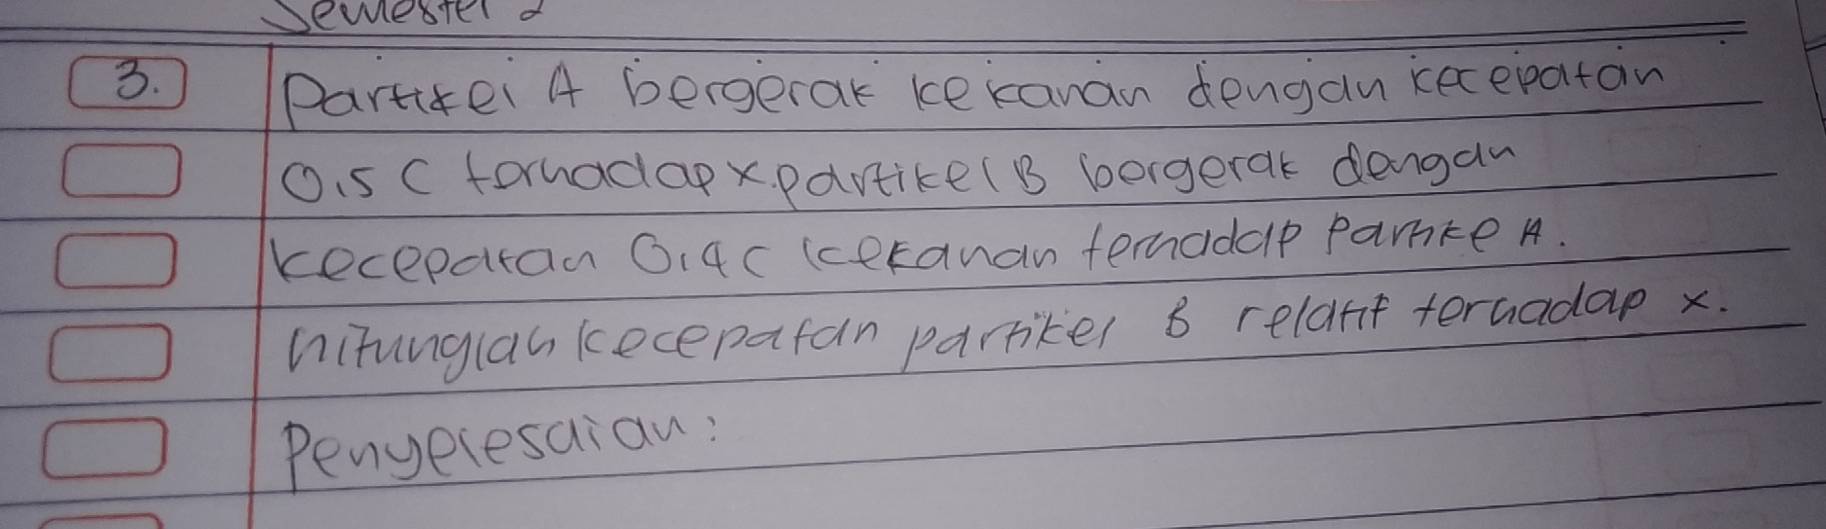 Semester 2
3. Partikel A bergerak ke kanan dengan kecepatan
0,5 C terhadap x. partikel B bergerak dengan
kecepatan 0,4c kekanan terhadap Partike A.
hitunglah kecepatan partikel B relatif terhadap x.
Penyelesaian: